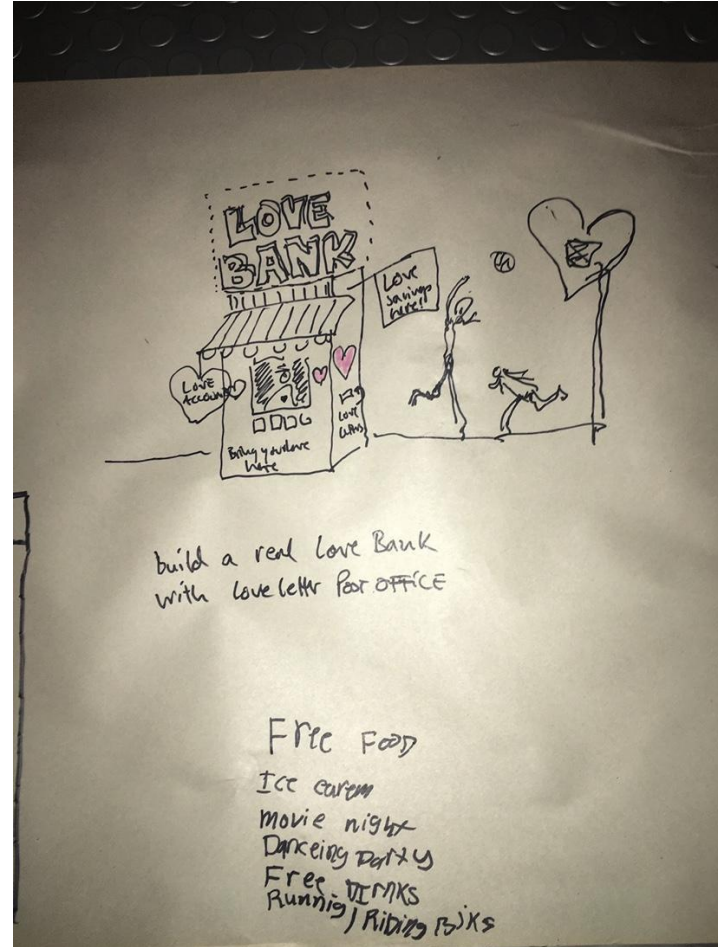 LOVE
BANK
Love
Savings
here!
LOVE
ACCOUNT
Love
letters
Bring your love
here
build a real Love Bank
with love letter Post OFFiCE
Free FOOD
Ice carem
movie night
Danceing Party
Free DrNKS
Runnig / Riding BiKs